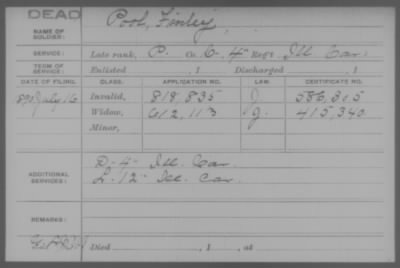 DEAD
NAME OF SOLDIER: Pool, Finley,
SERVICE: Late rank, P. Co. C, 4" Reg't Ill. Cav.
TERM OF SERVICE: Enlisted , 1 Discharged , 1
DATE OF FILING. CLASS. APPLICATION NO. LAW. CERTIFICATE NO.
July 16 Invalid, 818,835 J. 586,305
Widow, 612,113 J. 415,340
Minor,
ADDITIONAL SERVICES: D-4" Ill. Cav.
L-12" Ill. Cav.
REMARKS:
Died , 1 , at